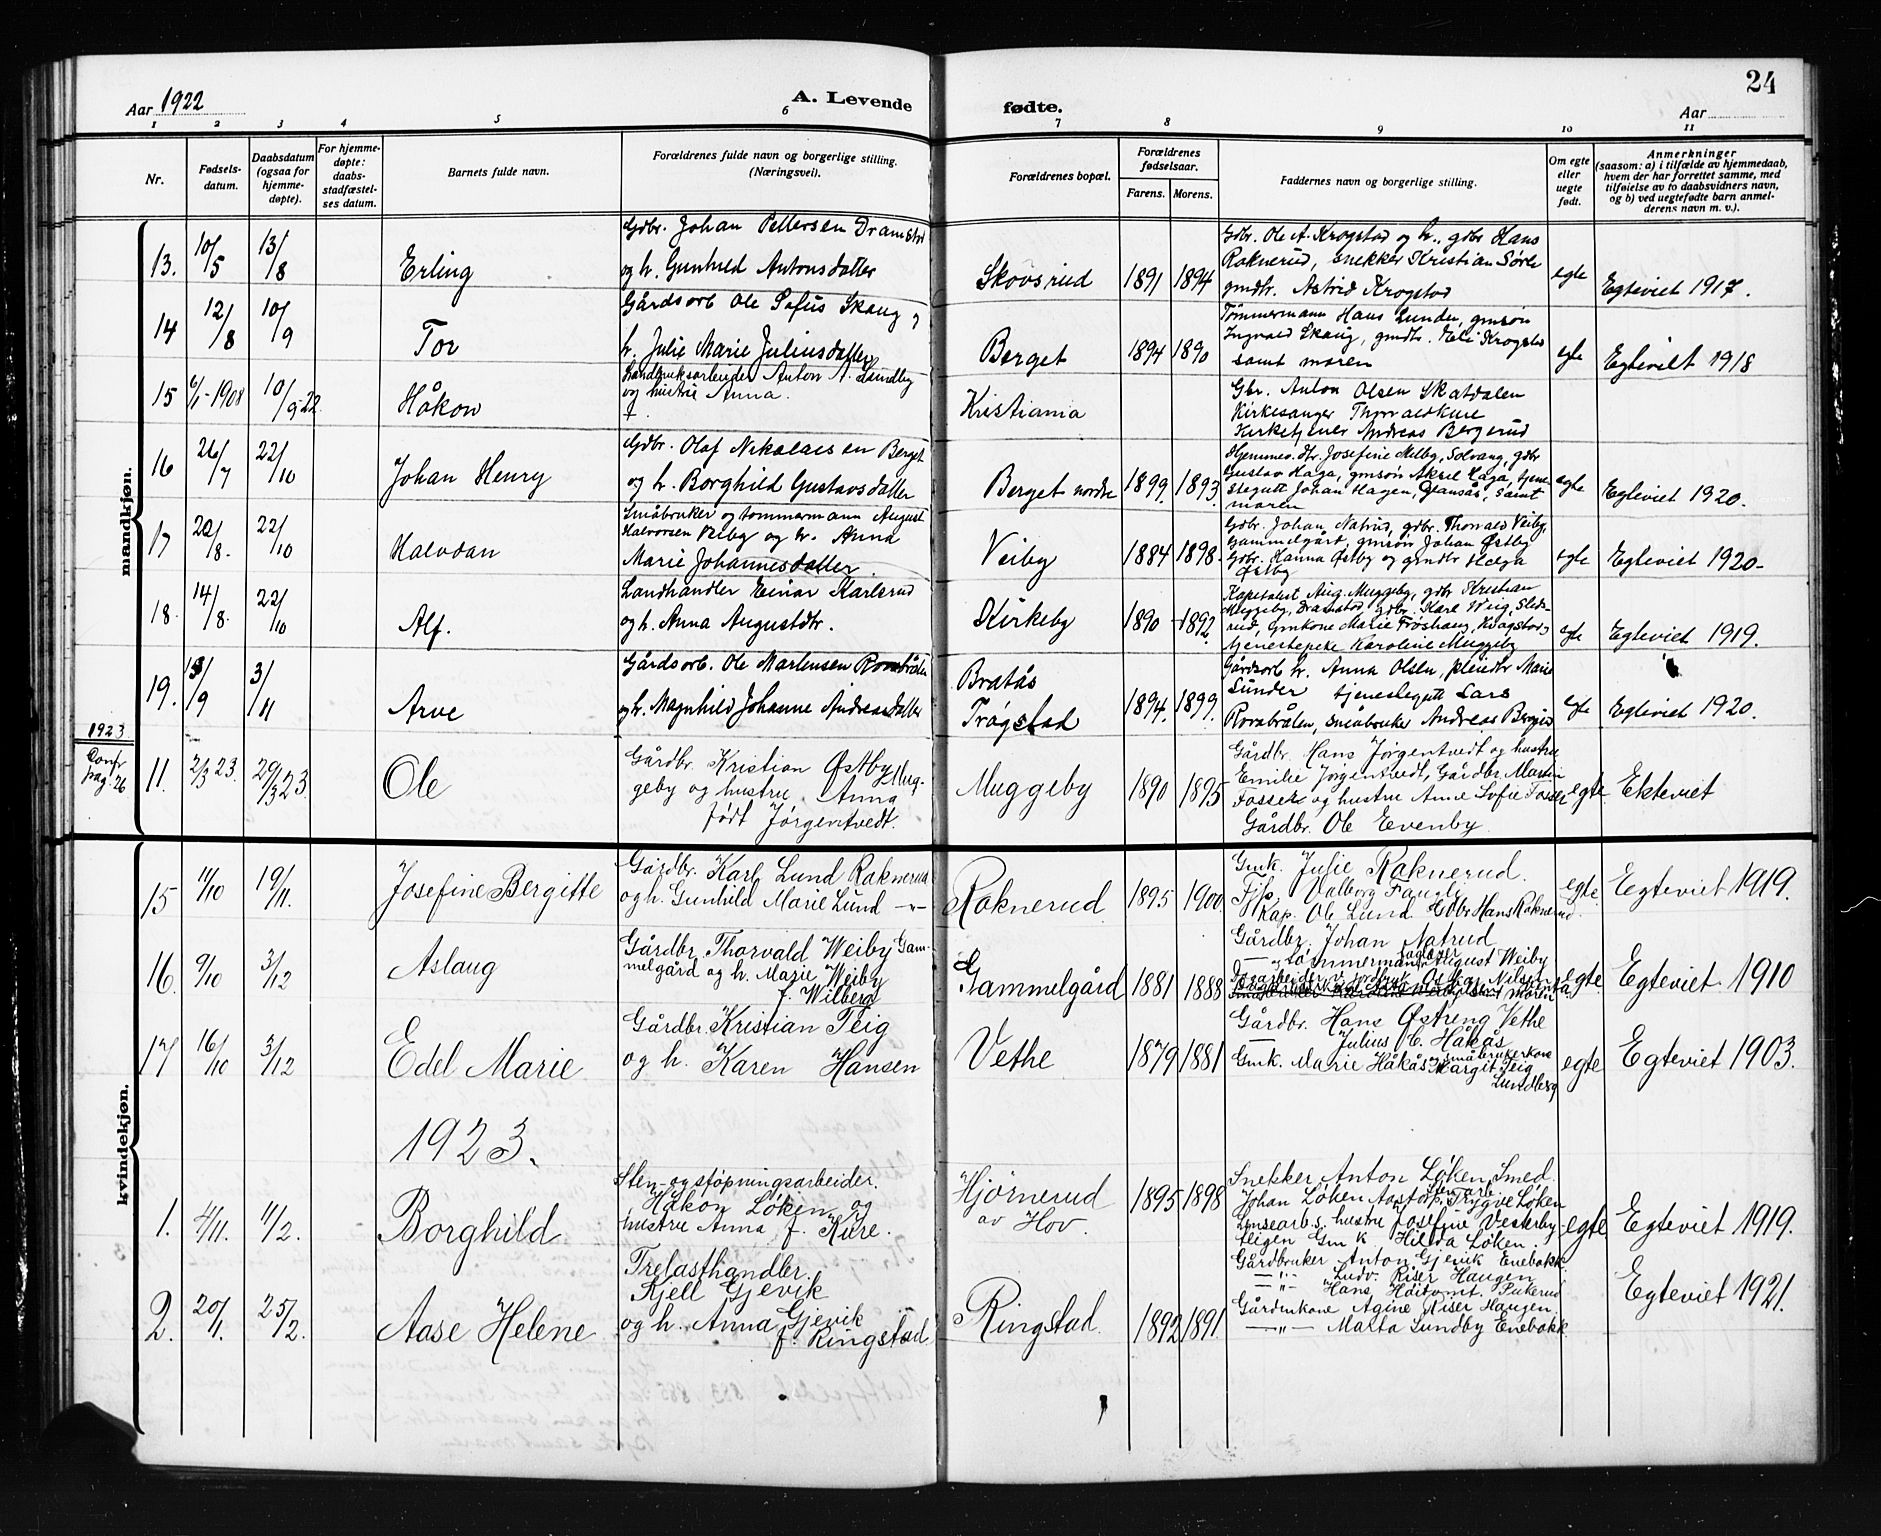 24
Aar 1922
A. Levende
fødte.
Aar
1 2 3 4 5 6 7 8 9 10 11
Nr.
Fødsels-
datum.
Daabsdatum
(ogsaa for
hjemme-
døpte).
For hjemme-
døpte:
daabs-
stadfæstel-
ses datum.
Barnets fulde navn.
Forældrenes fulde navn og borgerlige stilling.
(Næringsvei).
Forældrenes bopæl.
Forældrenes
fødselsaar.
Farens. Morens.
Faddernes navn og borgerlige stilling.
Om egte
eller
uegte
født.
Anmerkninger
(saasom: a) i tilfælde av hjemmedaab,
hvem der har forrettet samme, med
tilføielse av to daabsvidners navn,
og b) ved uegtefødte barn anmel-
derens navn m. v.).
mandkjøn.
13. 10/5 13/8 Erling
Gdbr. Johan Pettersen Dramstad
og h. Gunhild Antonsdatter
Skovsrud 1891 1894
Gdbr. Ole A. Krogstad og h., gdbr Hans
Raknerud, snekker Kristian Sørli
gmdtr. Astrid Krogstad
egte Egteviet 1917.
14 12/8 10/9 Tor
Gårdsarb Ole Sofus Skaug og
h. Julie Marie Juliusdatter
Berget 1894 1890
Tømmermann Hans Lunder, gmsøn
Ingvald Skaug, gmdtr. Krogstad
samt moren
egte Egteviet 1918
15 6/1-1908 10/9-22 Håkon
Landbruksarbeider Anton A. Lundby
og hustru Anna.
Kristiania
Gbr. Anton Olsen Skatdalen
Kirkesanger Thorvald Kure
Kirketjener Andreas Bergerud
16 26/7 22/10 Johan Henry
Gdbr. Olaf Nikolaisen Berget
og h. Borghild Gustavsdatter
Berget nordre 1899 1893.
Hjemmev. dtr. Josefine Melby, Solvang, gdbr
Gustav Haga, gmsøn Aksel Haga, tjene-
stegutt Johan Hagen, samt
moren
egte Egteviet 1920.
17 20/8. 22/10 Halvdan
Småbruker og tømmermann August
Halvorsen Veiby og h. Anna
Marie Johannesdatter.
Veiby 1884 1898.
Gdbr. Johan Natrud, gdbr. Thorvald Veiby,
Gammelgård, gmsøn Johan Østby
Gdbr. Hanna Østby og gmdtr Helga
Østby
egte Egteviet 1920-
18. 14/8. 22/10 Alf.
Landhandler Einar Karlsrud
og h. Anna Augustdtr.
Kirkeby 1890 1892.
Kapitalist Aug. Muggeby, gdbr Kristian
Muggeby, Dramstad, gdbr. Karl
gmkone Marie Frøshaug,
tjenestepike Karoline Muggeby
egte Egteviet 1919.
19. 13/9 3/11 Arve
Gårdsarb. Ole Martensen Rombrålen
og h. Magnhild Johanne Andreasdatter
Bratås
Trøgstad 1894. 1899.
Gårdsarb h. Anna Olsen, pleiedtr Marie
Sunder tjenestegutt Lars
småbruker Andreas
egte Egteviet 1920.
1923
Confr
pag. 26
11. 2/3 23. 29/3 23. Ole
Gårdbr. Kristian Østby Mug-
geby og hustru Anna
født Jørgentvedt.
Muggeby 1890 1895
Gårdbr. Hans Jørgentvedt og hustru
Emilie Jørgentvedt, Gårdbr. Martin
Fosser og hustru Anne Sofie Fosser
Gårdbr. Ole Evenby.
egte Ekteviet
kvindekjøn.
15 11/10 19/11. Josefine Bergitte
Gårdbr. Karl Lund Raknerud
og h. Gunhild Marie Lund -"-
Raknerud 1895 1900.
Gmk. Julie Raknerud.
Valborg
Kap. Ole Lund Hans Raknerud.
egte. Egteviet 1919.
16. 9/10 3/12 Aslaug
Gårdbr. Thorvald Weiby Gam-
melgård og h. Marie Weiby
f. Wilberg
Gammelgård 1881 1888
Gårdbr. Johan Natrud
Tømmermann August Weiby
egte. Egteviet 1910
17 16/10 3/12 Edel Marie
Gårdbr. Kristian Teig
og h. Karen Hansen
Vethe 1879 1881
Gårdbr. Hans Østreng Vethe
— Julius C. Håkås
Gmk. Marie Håkås og småbrukerkone
Margit Teig
Lundberg
egte Egteviet 1903.
1923.
1. 4/11. 11/2. Borghild
Sten- og støpningsarbeider.
Håkon Løken og
hustru Anna f. Kure.
Hjørnerud
av Hov. 1895 1898
Snekker Anton Løken, Smed.
Johan Løken Trygve Løken
hustru Josefine Vesterby
Gmk Hilda Løken.
egte Egteviet 1919.
2. 20/1. 25/2. Aase Helene
Trelasthandler.
Kjell Gjevik
og h. Anna Gjevik
f. Ringstad
Ringstad. 1892 1891
Gårdbruker Anton Gjevik Enebakk
—"— Ludv. Riser Haugen
—"— Hans
Gårdmkone Agine Riser Haugen.
—"— Marta Sundby Enebakk
Egteviet 1921.